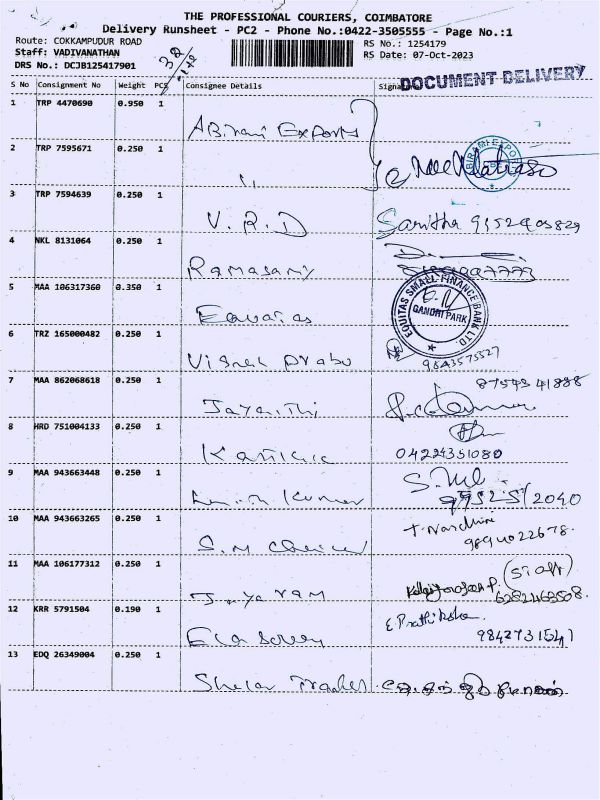 THE PROFESSIONAL COURIERS, COIMBATORE
Delivery Runsheet - PC2 - Phone No.:0422-3505555 - Page No.:1
Route: COKKAMPUDUR ROAD RS No.: 1254179
Staff: VADIVANATHAN RS Date: 07-Oct-2023
DRS No.: DCJB125417901
DOCUMENT DELIVERY
S No Consignment No Weight PCS Consignee Details
1 TRP 4470690 0.950 1 Abinami Exports
2 TRP 7595671 0.250 1 "
3 TRP 7594639 0.250 1 V.R.D Saritha
4 NKL 8131064 0.250 1 Ramasamy
5 MAA 106317360 0.350 1 Equitas
EQUITAS SMALL FINANCE BANK LTD
GANDHI PARK
6 TRZ 165000482 0.250 1 Vishnu Prabu 9843575527
7 MAA 862068618 0.250 1 Jayanthi 8754541888
8 HRD 751004133 0.250 1 Karthik 04224351080
9 MAA 943663448 0.250 1 Kumar
10 MAA 943663265 0.250 1 S.M 9894022678.
11 MAA 106177312 0.250 1 Jayaram (Staff) 6282463508.
12 KRR 5791504 0.190 1 E Prathiksha 9842731541
13 EDQ 26349004 0.250 1